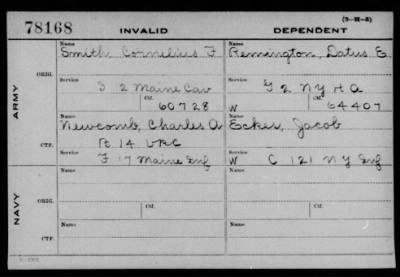 (3-IE-5)
78168 INVALID DEPENDENT
Name Name
Smith Cornelius F Remington, Datus E
ORIG.
Service Service
I 2 Maine Cav G 2 N Y H A
Ctf. Ctf.
60728 W 64407
ARMY
Name Name
Newcomb, Charles A Ecker, Jacob
R 14 VRC
CTF.
Service Service
F 17 Maine Inf W C 121 N Y Inf
Name Name
ORIG.
Ctf. Ctf.
NAVY
Name Name
CTF.